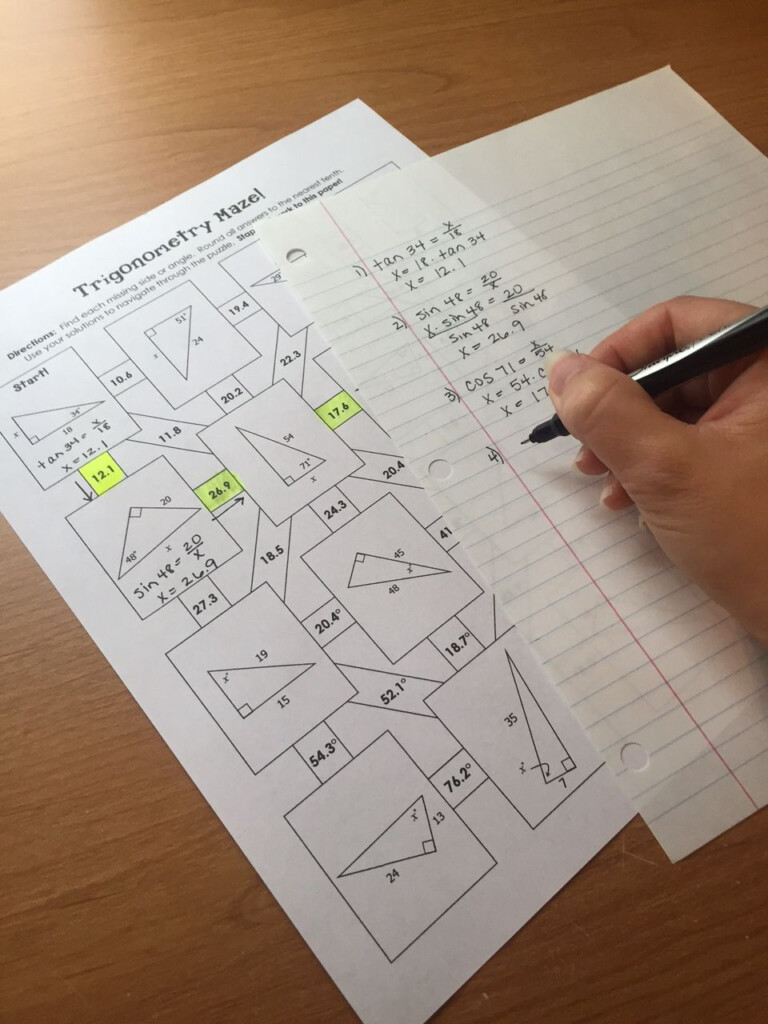 Trigonometry Maze!
Directions: Find each missing side or angle. Round all answers to the nearest tenth.
Use your solutions to navigate through the puzzle. to this paper!
Start!
x
34°
18
tan 34 = x/18
x = 12.1
10.6
51°
x
24
19.4
12.1
11.8
20.2
22.3
17.6
20
48°
x
sin 48 = 20/x
x = 26.9
26.9
54
71°
x
20.4
27.3
18.5
24.3
41
45
x°
48
19
x°
15
20.4°
18.7°
52.1°
54.3°
35
x°
7
76.2°
x°
13
24
1) tan 34 = x/18
x = 18 · tan 34
x = 12.1
2) sin 48 = 20/x
x · sin 48 = 20
sin 48 sin 48
x = 26.9
3) cos 71 = x/54
x = 54 · c
x = 17
4)